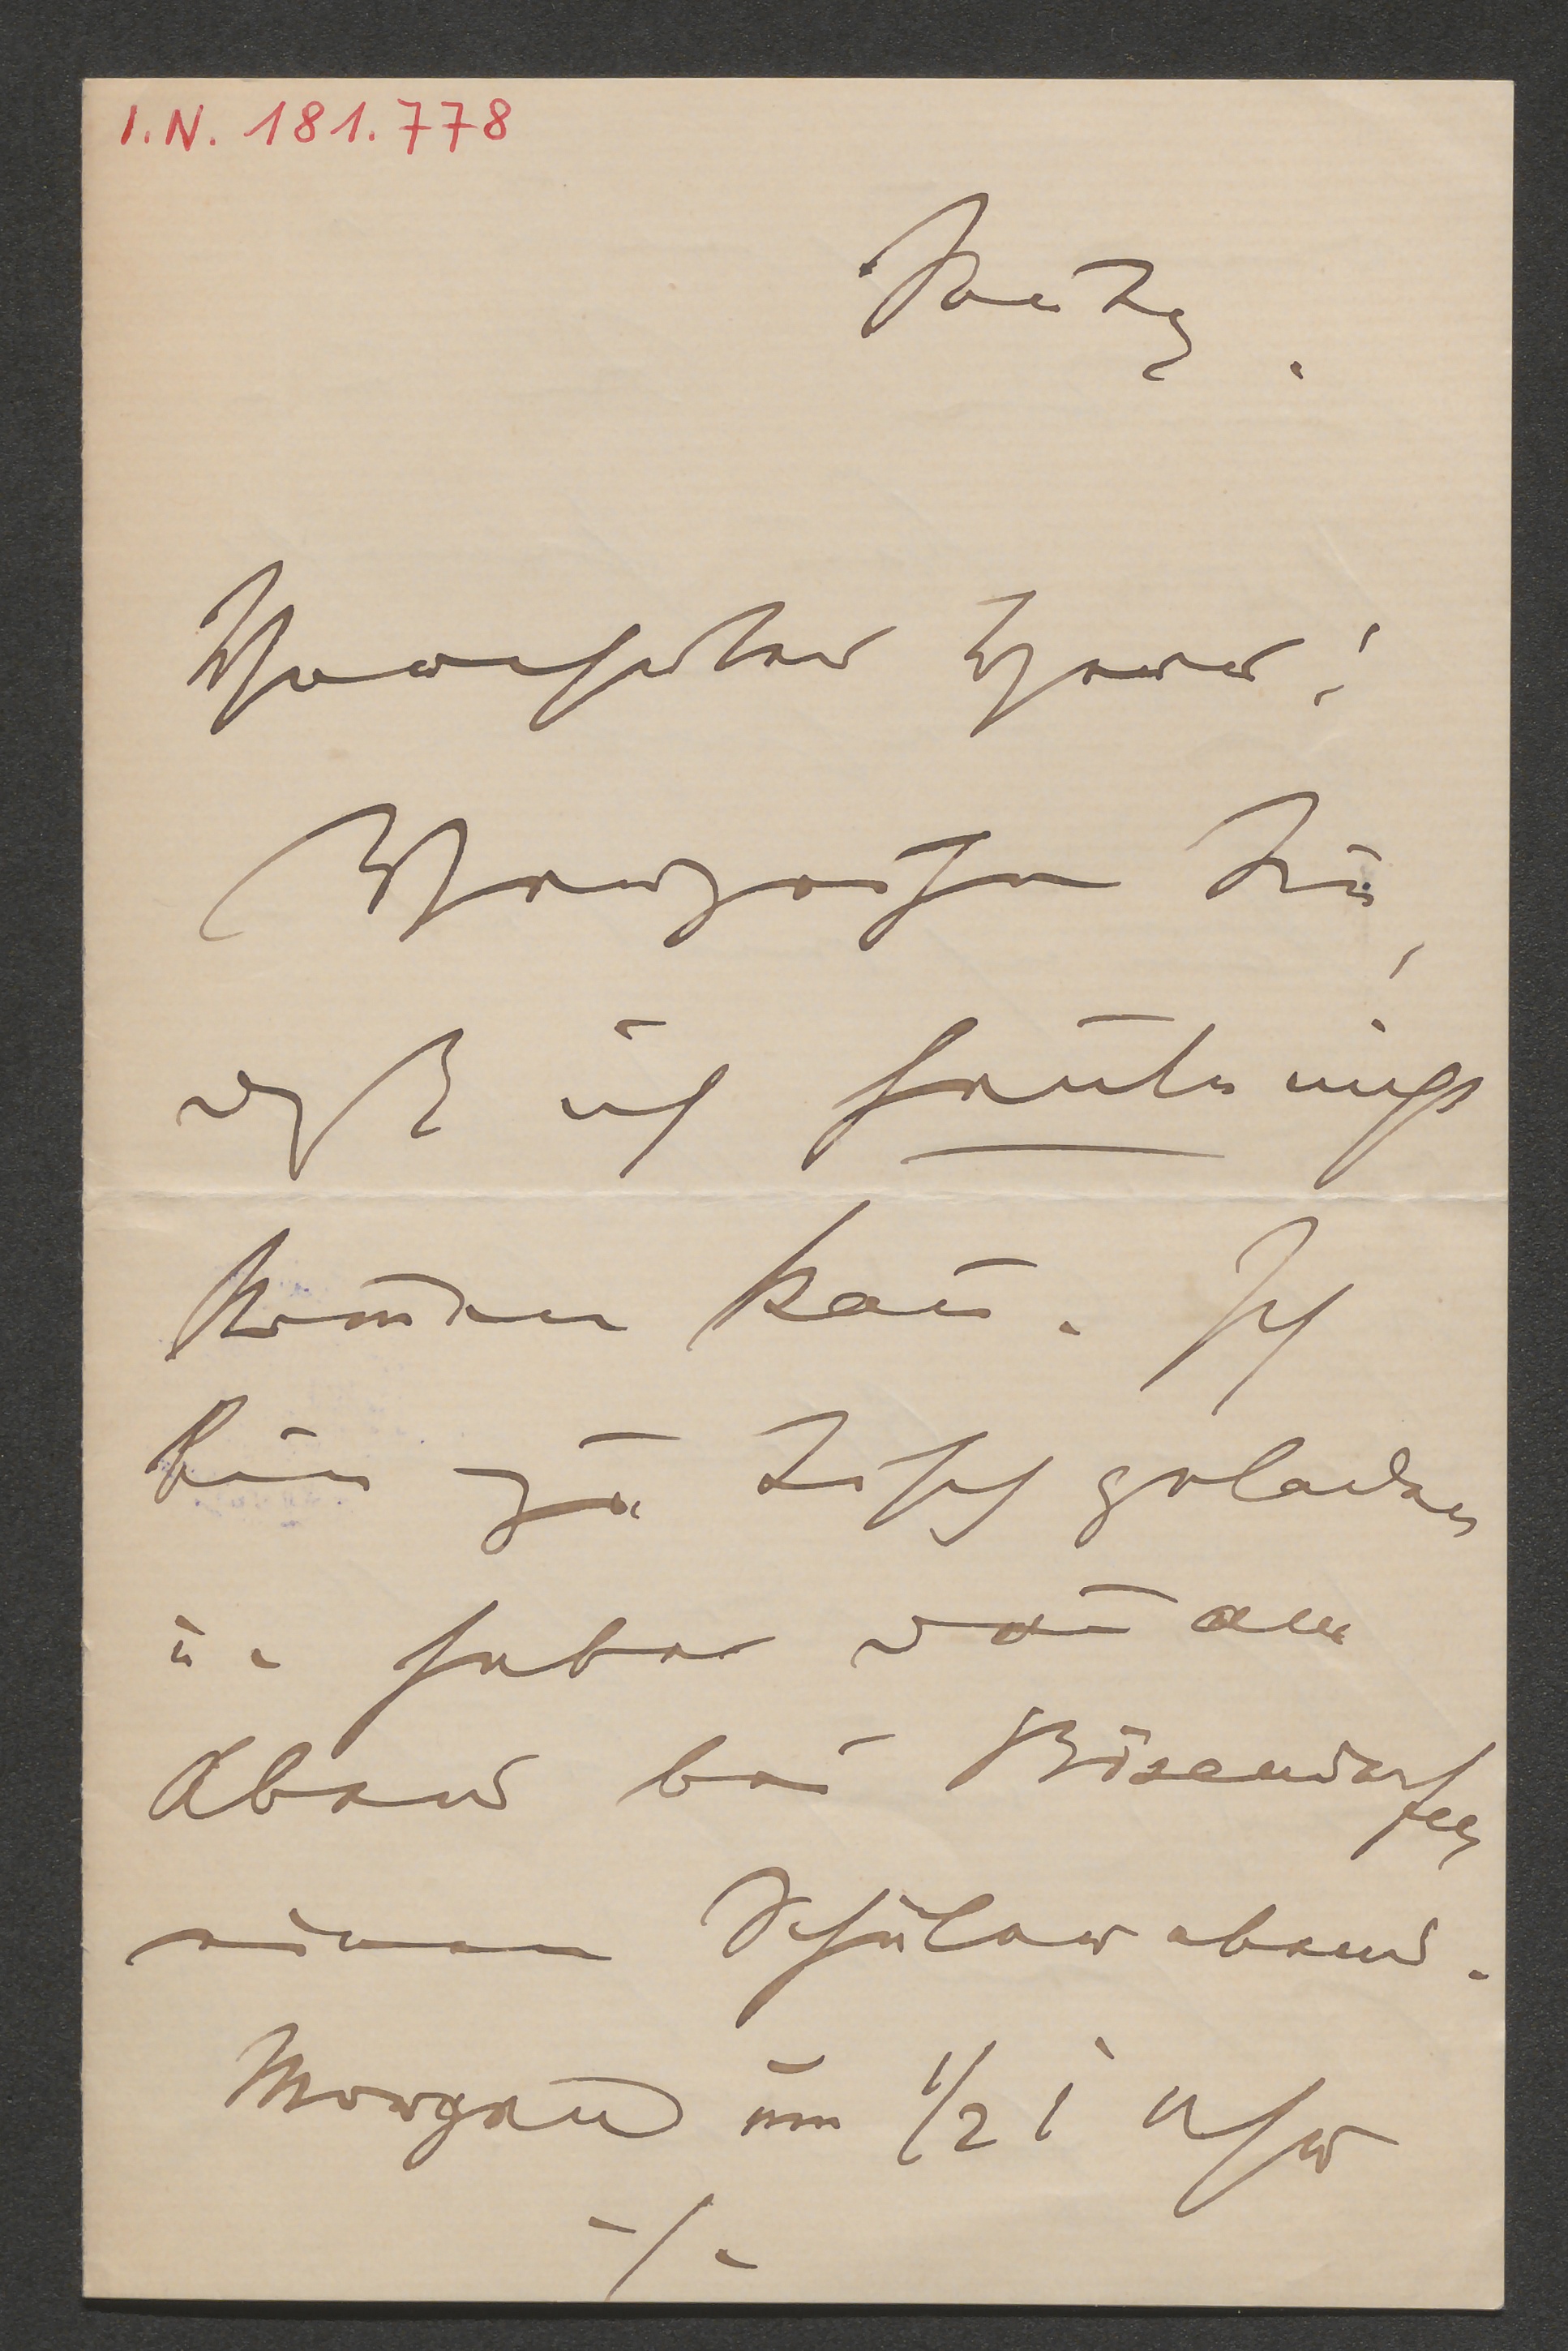 I.N. 181.778
Verehrter Herr!
Verzeihen Sie,
daß ich heute nicht
kom̅en kan̅. Ich
bin zu Tisch geladen
u. habe dan̅ am
Abend bei Bösendorfer
einen Schülerabend.
Morgen um 1/2 1 Uhr
-/-